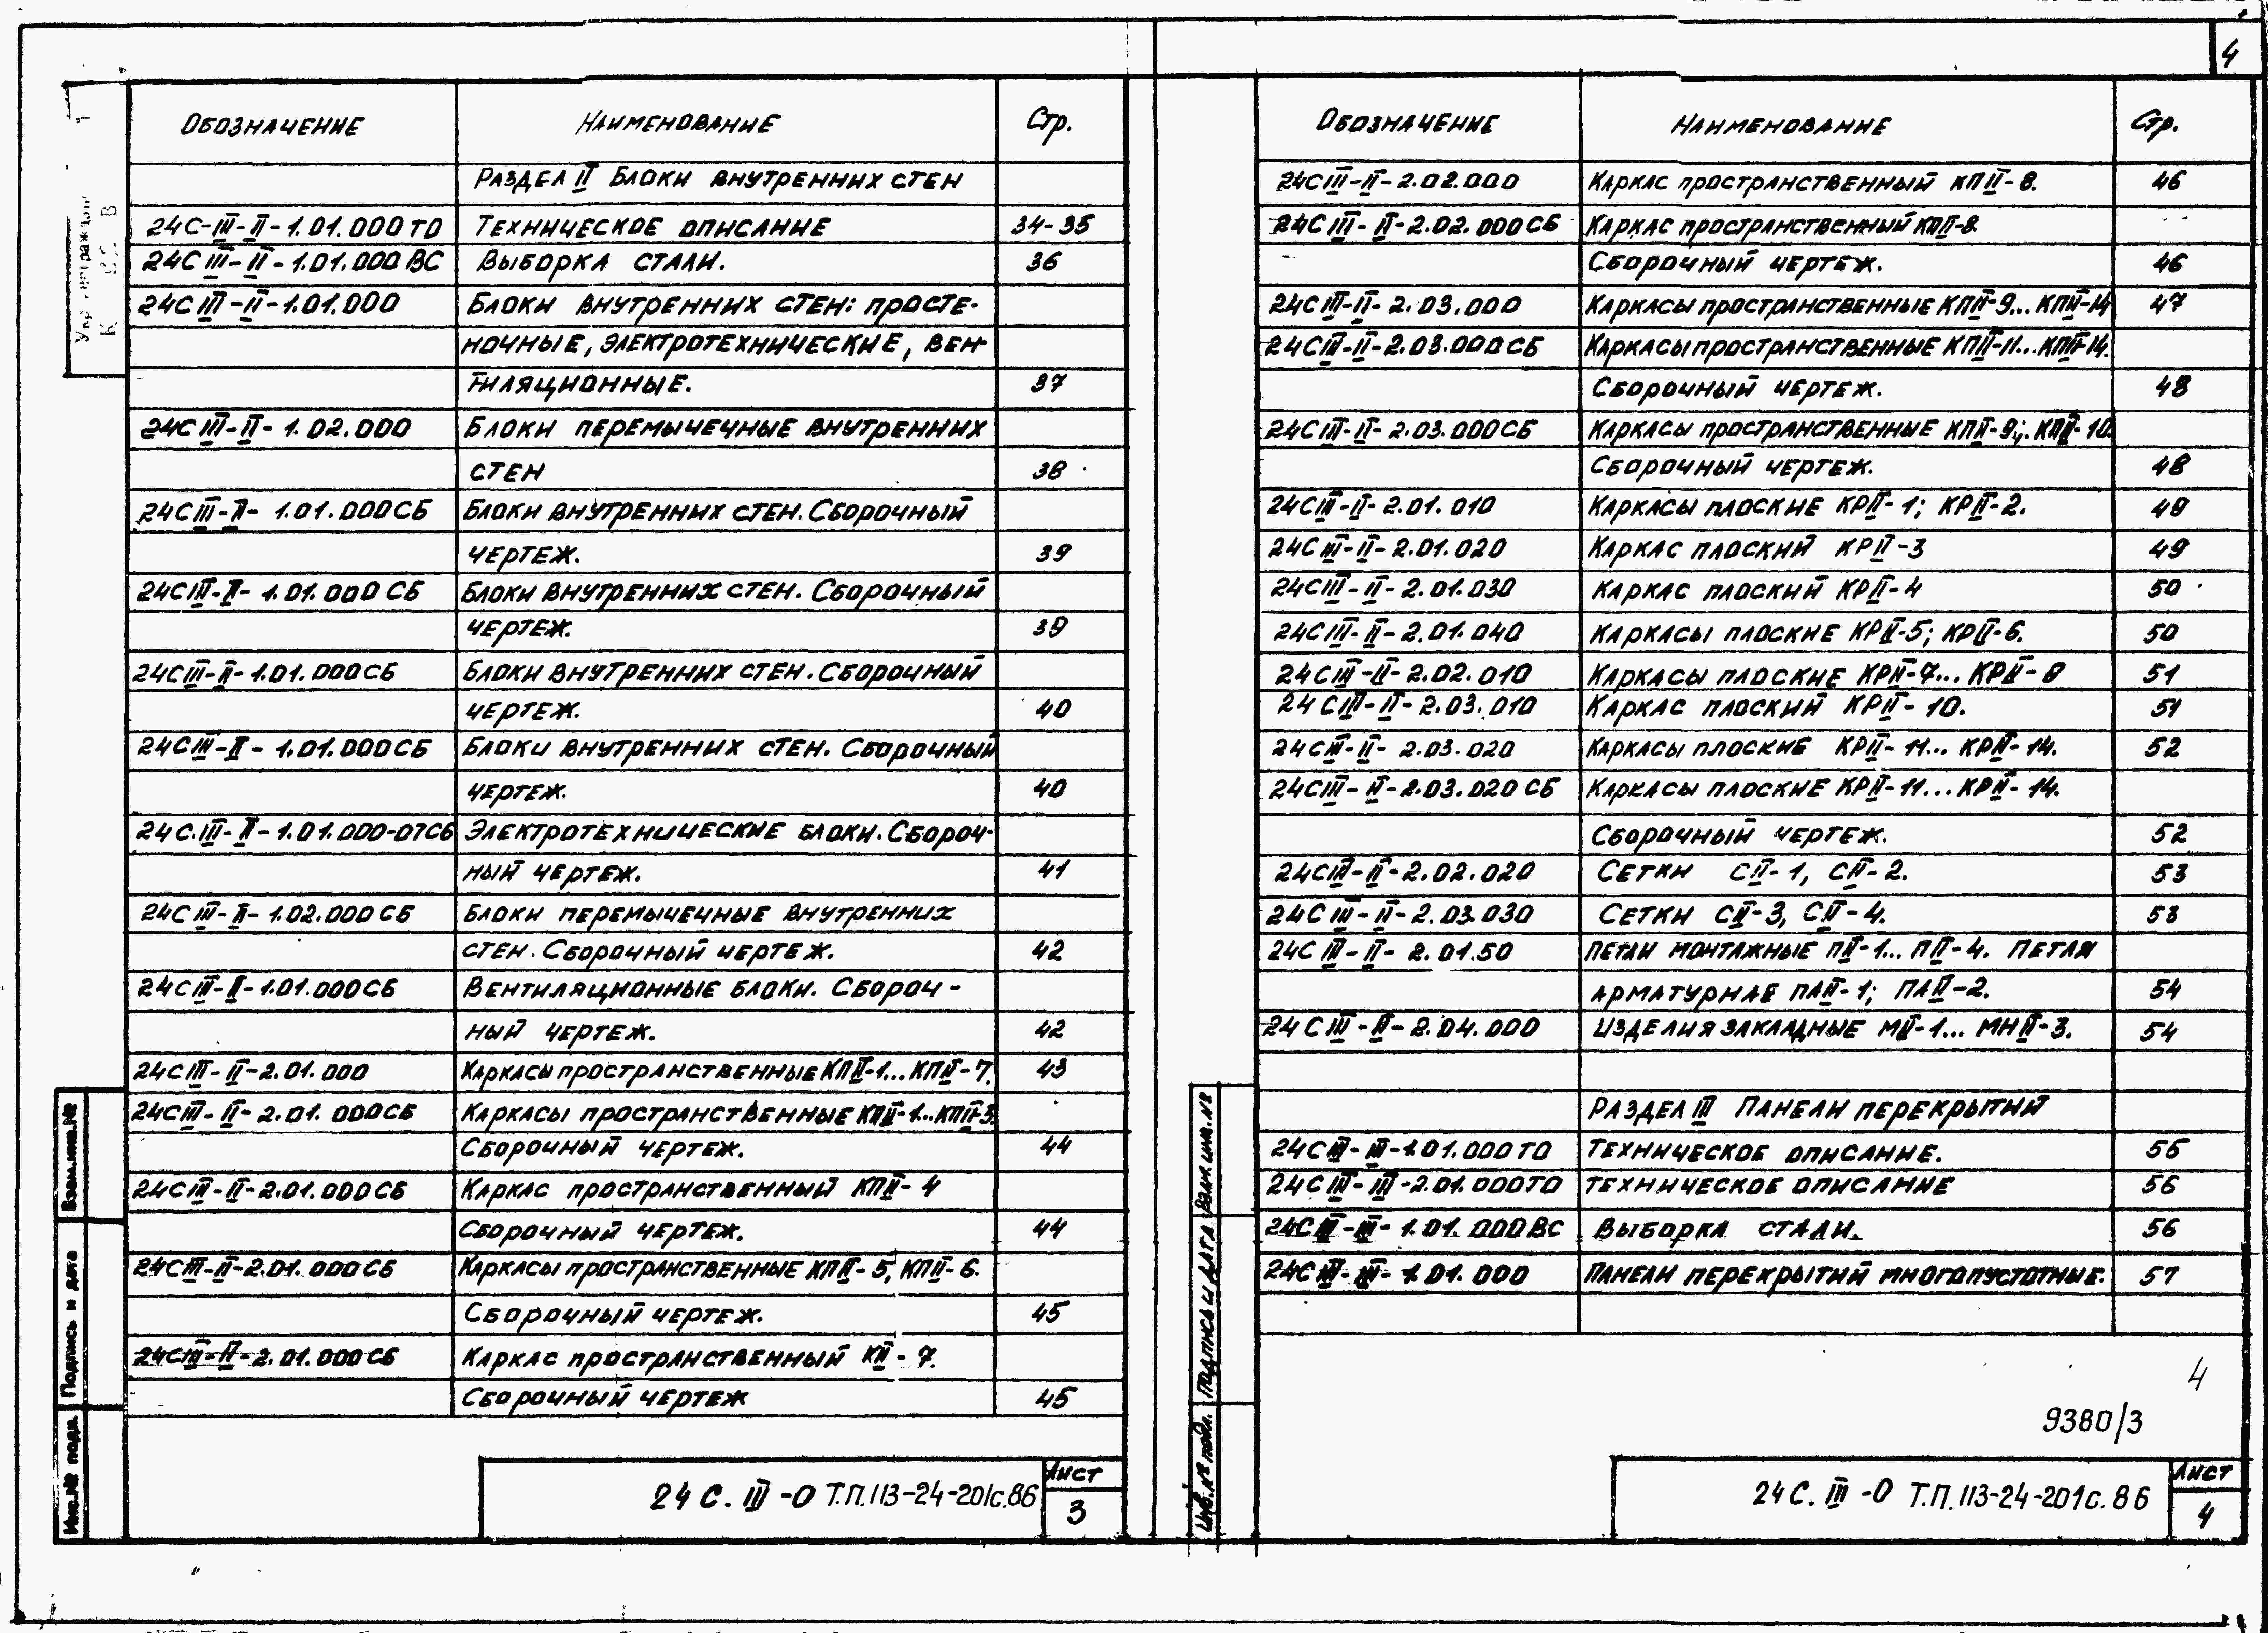 4
ОБОЗНАЧЕНИЕ НАИМЕНОВАНИЕ Стр.
РАЗДЕЛ II БЛОКИ ВНУТРЕННИХ СТЕН
24С-III-II-1.01.000ТО ТЕХНИЧЕСКОЕ ОПИСАНИЕ 34-35
24СIII-II-1.01.000ВС ВЫБОРКА СТАЛИ. 36
24СIII-II-1.01.000 БЛОКИ ВНУТРЕННИХ СТЕН: ПРОСТЕ-
НОЧНЫЕ, ЭЛЕКТРОТЕХНИЧЕСКИЕ, ВЕН-
ТИЛЯЦИОННЫЕ. 37
24СIII-II-1.02.000 БЛОКИ ПЕРЕМЫЧЕЧНЫЕ ВНУТРЕННИХ
СТЕН 38
24СIII-II-1.01.000СБ БЛОКИ ВНУТРЕННИХ СТЕН. СБОРОЧНЫЙ
ЧЕРТЕЖ. 39
24СIII-II-1.01.000СБ БЛОКИ ВНУТРЕННИХ СТЕН. СБОРОЧНЫЙ
ЧЕРТЕЖ. 39
24СIII-II-1.01.000СБ БЛОКИ ВНУТРЕННИХ СТЕН. СБОРОЧНЫЙ
ЧЕРТЕЖ. 40
24СIII-II-1.01.000СБ БЛОКИ ВНУТРЕННИХ СТЕН. СБОРОЧНЫЙ
ЧЕРТЕЖ. 40
24С.III-II-1.01.000-07СБ ЭЛЕКТРОТЕХНИЧЕСКИЕ БЛОКИ. СБОРОЧ-
НЫЙ ЧЕРТЕЖ. 41
24СIII-II-1.02.000СБ БЛОКИ ПЕРЕМЫЧЕЧНЫЕ ВНУТРЕННИХ
СТЕН. СБОРОЧНЫЙ ЧЕРТЕЖ. 42
24СIII-II-1.01.000СБ ВЕНТИЛЯЦИОННЫЕ БЛОКИ. СБОРОЧ-
НЫЙ ЧЕРТЕЖ. 42
24СIII-II-2.01.000 КАРКАСЫ ПРОСТРАНСТВЕННЫЕ КПII-1...КПII-7. 43
24СIII-II-2.01.000СБ КАРКАСЫ ПРОСТРАНСТВЕННЫЕ КПII-1...КПII-3.
СБОРОЧНЫЙ ЧЕРТЕЖ. 44
24СIII-II-2.01.000СБ КАРКАС ПРОСТРАНСТВЕННЫЙ КПII-4
СБОРОЧНЫЙ ЧЕРТЕЖ. 44
24СIII-II-2.01.000СБ КАРКАСЫ ПРОСТРАНСТВЕННЫЕ КПII-5, КПII-6.
СБОРОЧНЫЙ ЧЕРТЕЖ. 45
24СIII-II-2.01.000СБ КАРКАС ПРОСТРАНСТВЕННЫЙ КII-7.
СБОРОЧНЫЙ ЧЕРТЕЖ 45
Взам.инв.№
Подпись и дата
Инв.№ подл.
24 С. III-0 Т.П.113-24-201с.86
Лист
3
ОБОЗНАЧЕНИЕ НАИМЕНОВАНИЕ Стр.
24СIII-II-2.02.000 КАРКАС ПРОСТРАНСТВЕННЫЙ КПII-8. 46
24СIII-II-2.02.000СБ КАРКАС ПРОСТРАНСТВЕННЫЙ КПII-8.
СБОРОЧНЫЙ ЧЕРТЕЖ. 46
24СIII-II-2.03.000 КАРКАСЫ ПРОСТРАНСТВЕННЫЕ КПII-9...КПII-14 47
24СIII-II-2.03.000СБ КАРКАСЫ ПРОСТРАНСТВЕННЫЕ КПII-11...КПII-14.
СБОРОЧНЫЙ ЧЕРТЕЖ. 48
24СIII-II-2.03.000СБ КАРКАСЫ ПРОСТРАНСТВЕННЫЕ КПII-9; КПII-10.
СБОРОЧНЫЙ ЧЕРТЕЖ. 48
24СIII-II-2.01.010 КАРКАСЫ ПЛОСКИЕ КРII-1; КРII-2. 49
24СIII-II-2.01.020 КАРКАС ПЛОСКИЙ КРII-3 49
24СIII-II-2.01.030 КАРКАС ПЛОСКИЙ КРII-4 50
24СIII-II-2.01.040 КАРКАСЫ ПЛОСКИЕ КРII-5; КРII-6. 50
24СIII-II-2.02.010 КАРКАСЫ ПЛОСКИЕ КРII-7... КРII-9 51
24СIII-II-2.03.010 КАРКАС ПЛОСКИЙ КРII-10. 51
24СIII-II-2.03.020 КАРКАСЫ ПЛОСКИЕ КРII-11... КРII-14. 52
24СIII-II-2.03.020СБ КАРКАСЫ ПЛОСКИЕ КРII-11...КРII-14.
СБОРОЧНЫЙ ЧЕРТЕЖ. 52
24СIII-II-2.02.020 СЕТКИ СII-1, СII-2. 53
24СIII-II-2.03.030 СЕТКИ СII-3, СII-4. 53
24СIII-II-2.01.50 ПЕТЛИ МОНТАЖНЫЕ ПII-1... ПII-4. ПЕТЛЯ
АРМАТУРНАЕ ПАII-1; ПАII-2. 54
24СIII-II-2.04.000 ИЗДЕЛИЯ ЗАКЛАДНЫЕ МII-1... МНII-3. 54
РАЗДЕЛ III ПАНЕЛИ ПЕРЕКРЫТИЙ
24СIII-III-1.01.000ТО ТЕХНИЧЕСКОЕ ОПИСАНИЕ. 55
24СIII-III-2.01.000ТО ТЕХНИЧЕСКОЕ ОПИСАНИЕ 56
24СIII-III-1.01.000ВС ВЫБОРКА СТАЛИ. 56
24СIII-III-1.01.000 ПАНЕЛИ ПЕРЕКРЫТИЙ МНОГОПУСТОТНЫЕ. 57
Взам.инв.№
Подпись и дата
Инв.№ подл.
4
9380/3
24 С. III-0 Т.П.113-24-201с.86
Лист
4